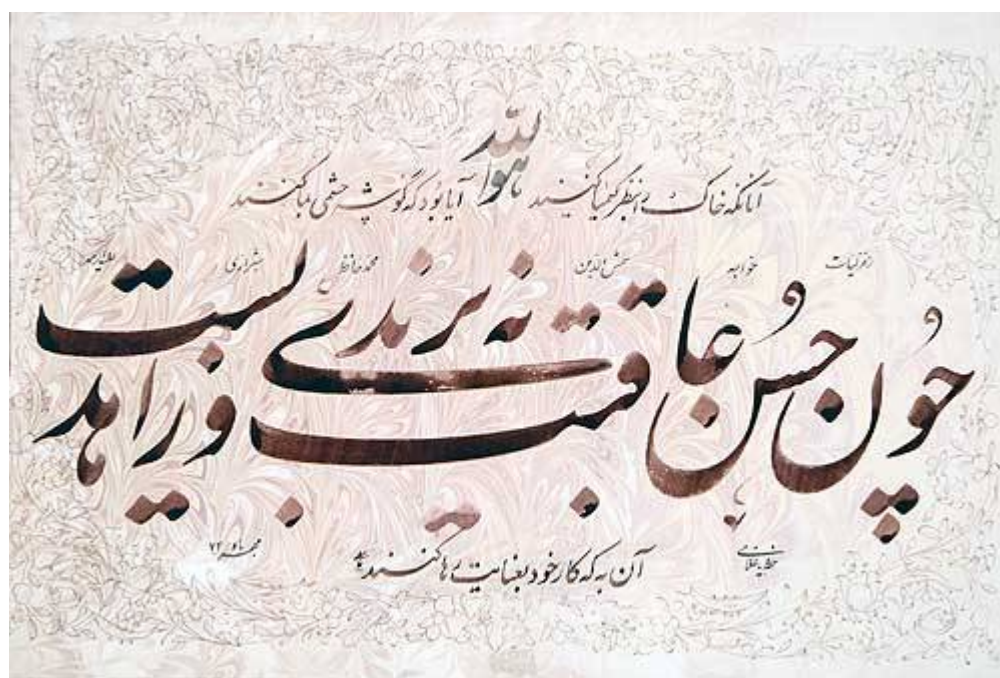 هوالله
آنانکه خاک را بنظر کیمیا کنند آیا بود که گوشه چشمی بما کنند
از غزلیات خواجه شمس الدین محمد حافظ شیرازی علیه الرحمه
چون حسن عاقبت نه برندی و زاهدیست
آن به که کار خود بعنایت رها کنند
۷۲